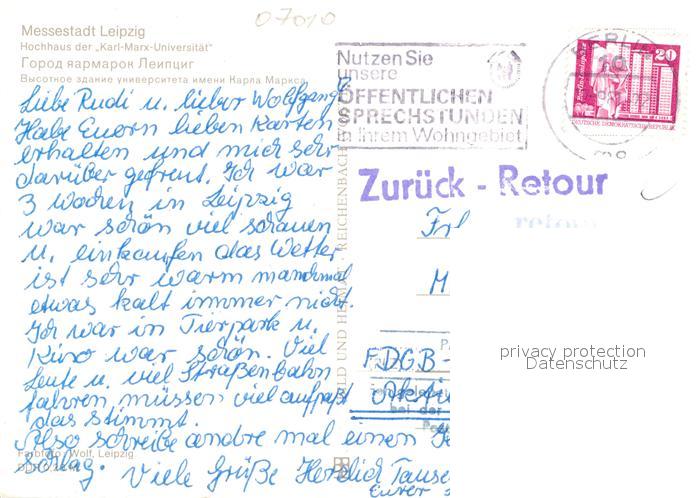 07010
Messestadt Leipzig
Hochhaus der „Karl-Marx-Universität"
Город ярмарок Лейпциг
Высотное здание университета имени Карла Маркса
Liebe Rudi u. lieber Wolfgang
Habe Euern lieben Karten
erhalten und mich sehr
darüber gefreut. Ich war
3 wochen in Leipzig
war schön viel schauen
u. einkaufen das Wetter
ist sehr warm manchmal
etwas kalt immer nicht.
Ich war in Tierpark u.
Kino war schön. Viel
Leute u. viel Straßenbahn
fahren müssen viel aufpaßt
das stimmt.
Also schreibe andre mal einen
Viele Grüße Herzlich
Eurer
Farbfoto: Wolf, Leipzig
BILD UND HEIMAT REICHENBACH
Nutzen Sie
unsere
ÖFFENTLICHEN
SPRECHSTUNDEN
in Ihrem Wohngebiet
BERLIN
20
DEUTSCHE DEMOKRATISCHE REPUBLIK
Zurück - Retour
retour
FDGB-
privacy protection
Datenschutz